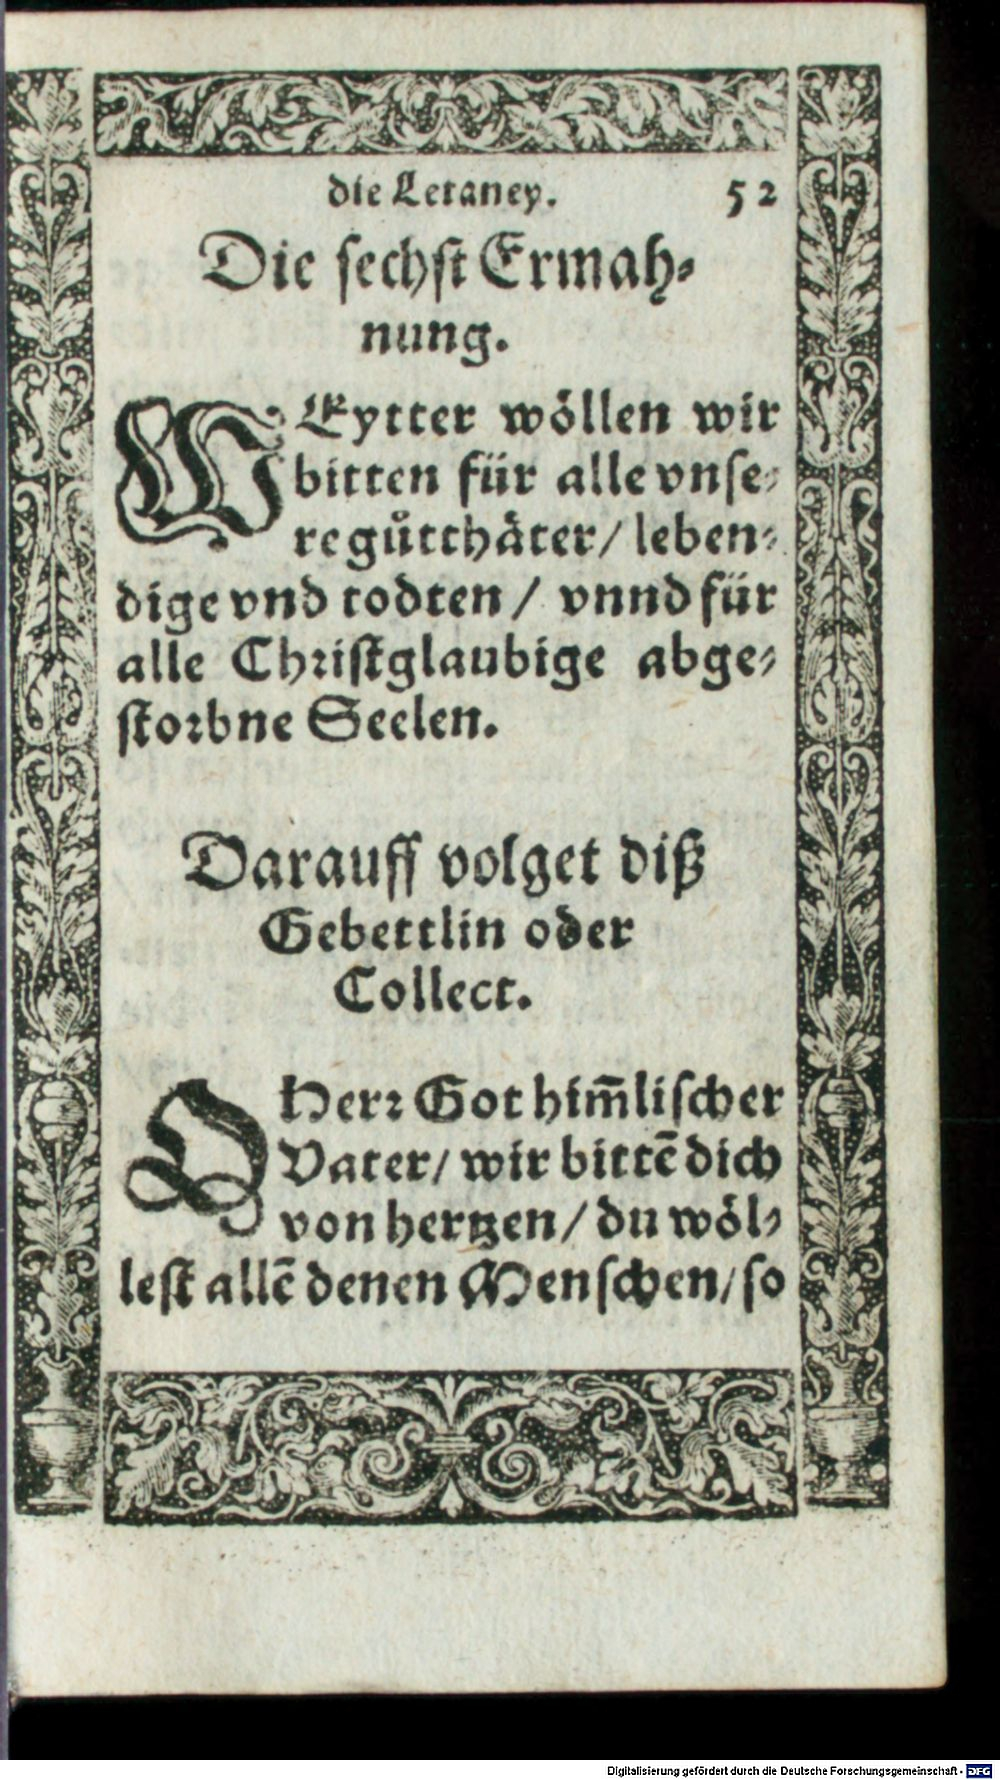 die Letaney. 52
Die sechst Ermah⸗
nung.
WEytter wöllen wir
bitten für alle vnse⸗
re gůtthäter/ leben⸗
dige vnd todten / vnnd für
alle Christglaubige abge⸗
storbne Seelen.
Darauff volget diß
Gebettlin oder
Collect.
O Herr Got him̃lischer
Vater/ wir bittē dich
von hertzen / du wöl⸗
lest allē denen Menschen/ so
Digitalisierung gefördert durch die Deutsche Forschungsgemeinschaft - DFG